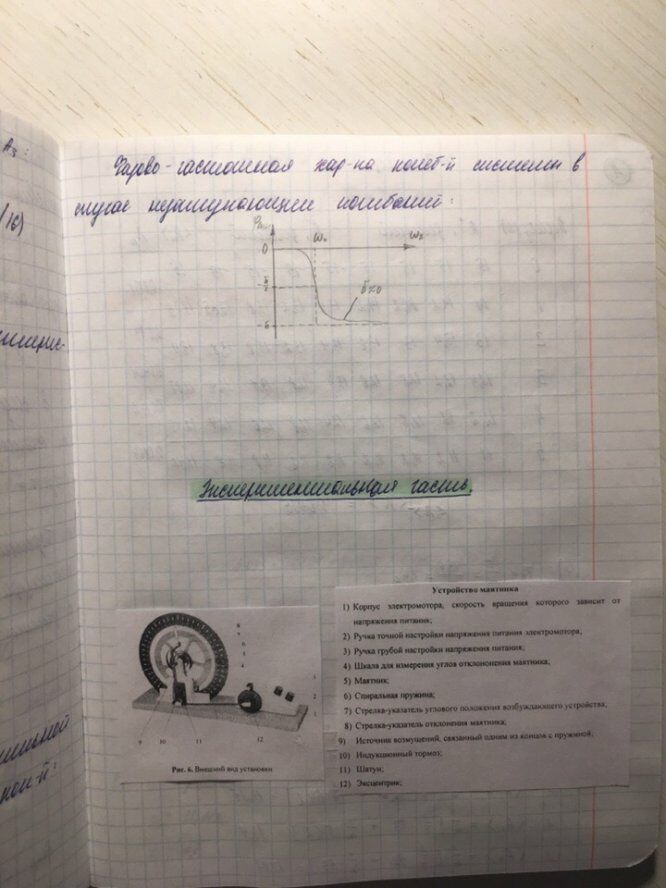 A₃:
/16)
Фазово-частотная хар-ка колеб-й системы в
случае незатухающих колебаний:
0
ω₀
ωв
б≈0
Экспериментальная часть.
Устройство маятника
1) Корпус электромотора, скорость вращения которого зависит от
напряжения питания;
2) Ручка точной настройки напряжения питания электромотора;
3) Ручка грубой настройки напряжения питания;
4) Шкала для измерения углов отклононения маятника;
5) Маятник;
6) Спиральная пружина;
7) Стрелка-указатель углового положения возбуждающего устройства,
8) Стрелка-указатель отклонения маятника;
9) Источник возмущений, связанный одним из концов с пружиной,
10) Индукционный тормоз;
11) Шатун;
12) Эксцентрик;
8
7
6
5
4
3
2
1
9 10 11 12
Рис. 6. Внешний вид установки